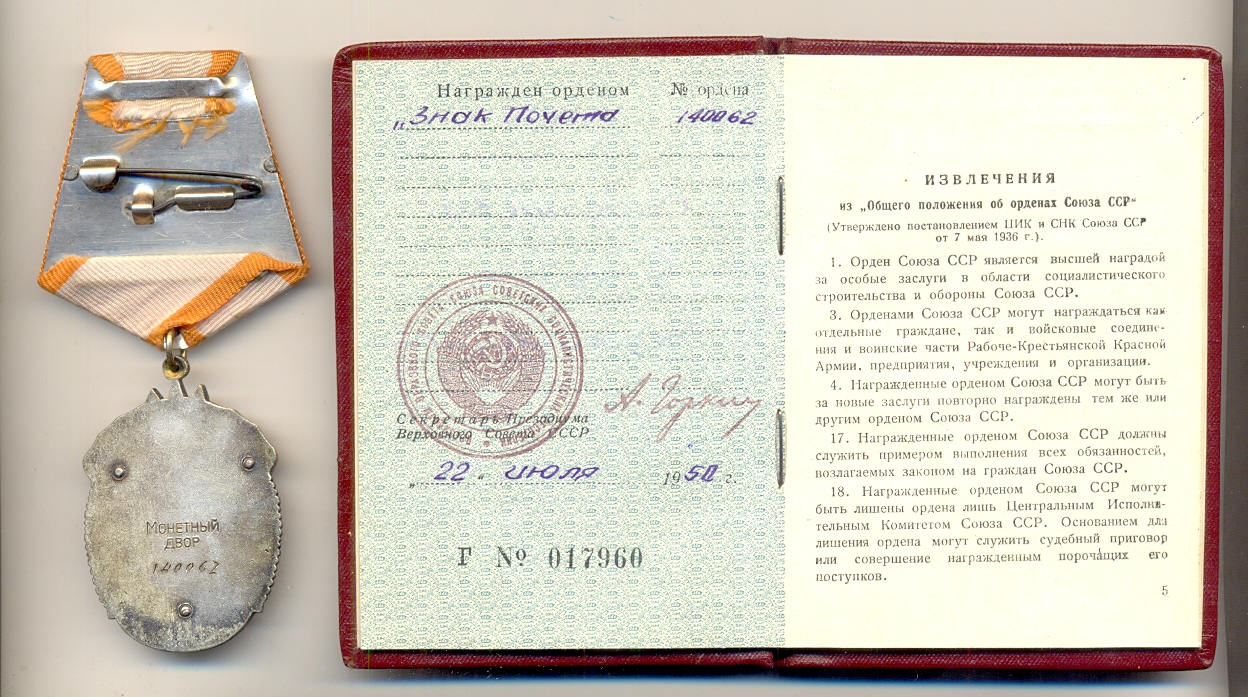 Монетный
двор
140062
Награжден орденом № ордена
„Знак Почета 140062
ВЕРХОВНОГО СОВЕТА СОЮЗА СОВЕТСКИХ СОЦИАЛИСТИЧЕСКИХ
А. Горкин
Секретарь Президиума
Верховного Совета СССР
„22“ июля 1950 г.
Г № 017960
ИЗВЛЕЧЕНИЯ
из „Общего положения об орденах Союза ССР“
(Утверждено постановлением ЦИК и СНК Союза ССР
от 7 мая 1936 г.).
1. Орден Союза ССР является высшей наградой
за особые заслуги в области социалистического
строительства и обороны Союза ССР.
3. Орденами Союза ССР могут награждаться как
отдельные граждане, так и войсковые соедине-
ния и воинские части Рабоче-Крестьянской Красной
Армии, предприятия, учреждения и организации.
4. Награжденные орденом Союза ССР могут быть
за новые заслуги повторно награждены тем же или
другим орденом Союза ССР.
17. Награжденные орденом Союза ССР должны
служить примером выполнения всех обязанностей,
возлагаемых законом на граждан Союза ССР.
18. Награжденные орденом Союза ССР могут
быть лишены ордена лишь Центральным Исполни-
тельным Комитетом Союза ССР. Основанием для
лишения ордена могут служить судебный приговор
или совершение награжденным порочащих его
поступков.
5